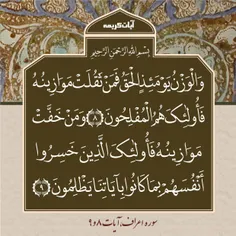 آیات کریمه
بِسْمِ اللهِ الرَّحْمٰنِ الرَّحِيمِ
وَالْوَزْنُ يَوْمَئِذٍ الْحَقُّ فَمَنْ ثَقُلَتْ مَوَازِينُهُ
فَأُولَٰئِكَ هُمُ الْمُفْلِحُونَ ﴿٨﴾ وَمَنْ خَفَّتْ
مَوَازِينُهُ فَأُولَٰئِكَ الَّذِينَ خَسِرُوا
أَنْفُسَهُمْ بِمَا كَانُوا بِآيَاتِنَا يَظْلِمُونَ ﴿٩﴾
سوره اعراف، آیات ۸ و ۹